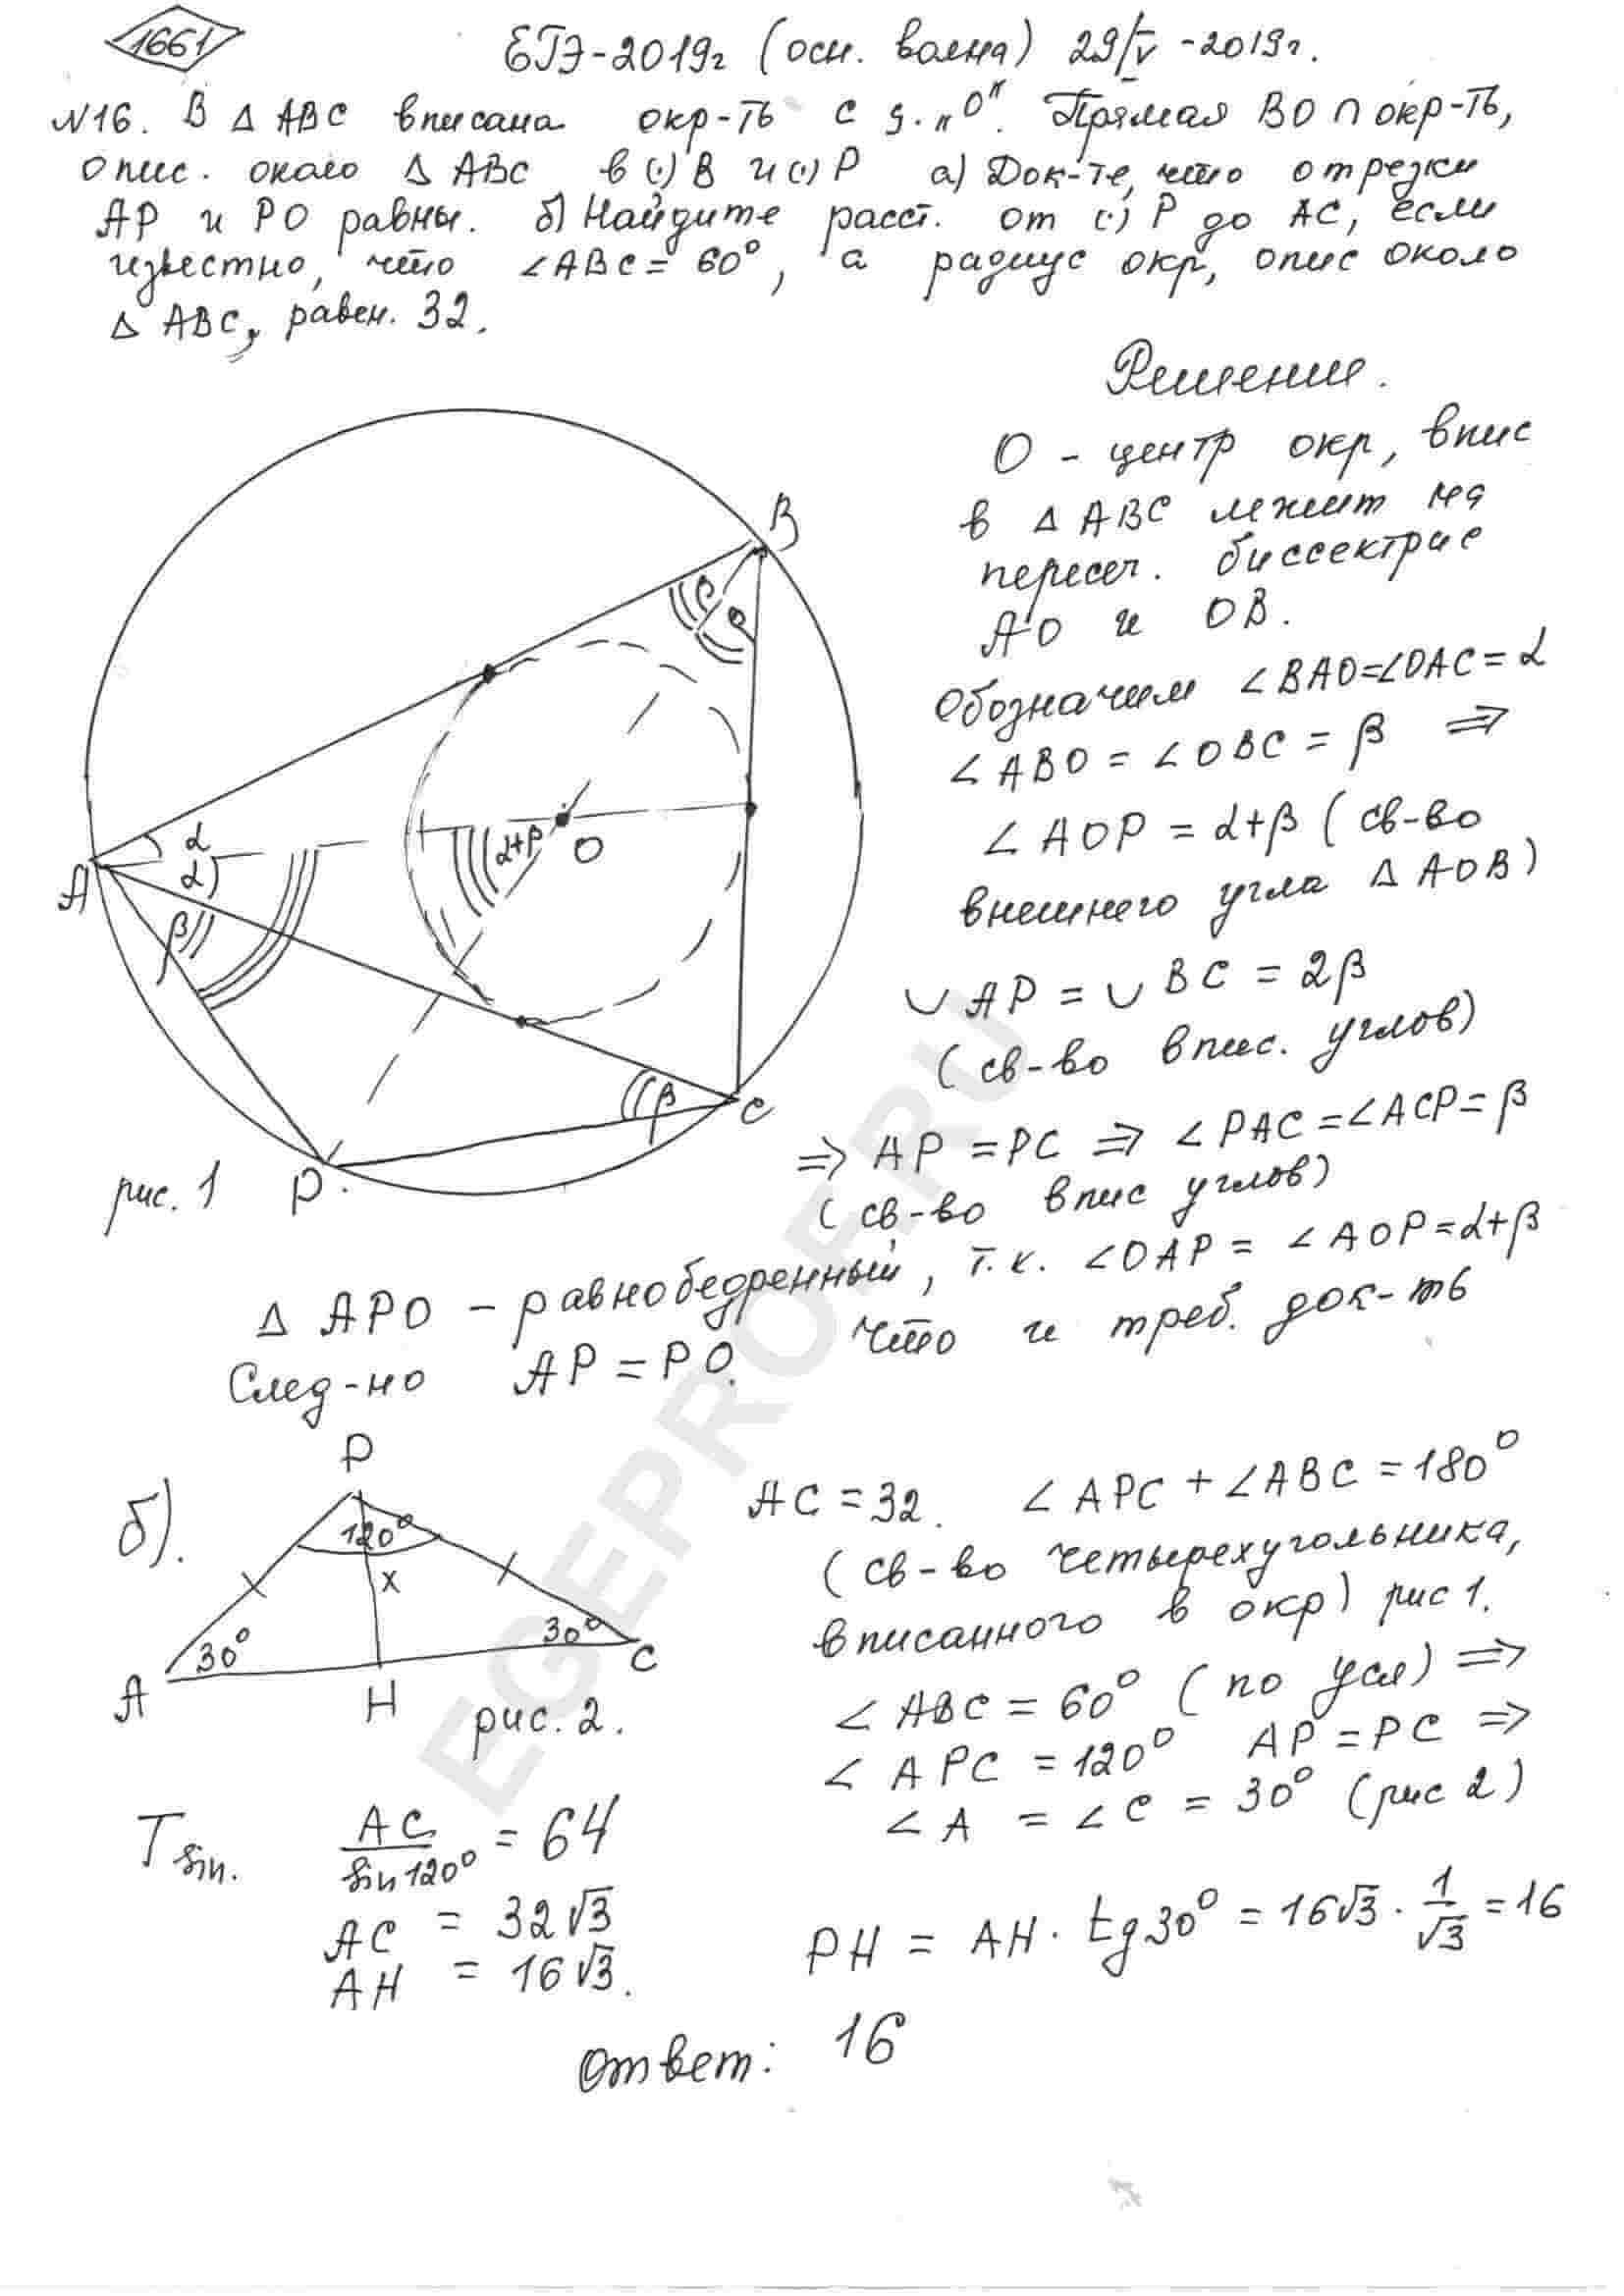 1661
ЕГЭ-2019г (осн. волна) 29/V -2019г.
№16. В △ ABC вписана окр-ть с ц. „О". Прямая BO ∩ окр-ть,
опис. около △ ABC в (·) B и (·) P а) Док-те, что отрезки
AP и PO равны. б) Найдите расст. от (·) P до AC, если
известно, что ∠ABC = 60°, а радиус окр, опис около
△ ABC, равен. 32.
Решение.
O - центр окр, впис
в △ ABC лежит на
пересеч. биссектрис
AO и OB.
Обозначим ∠BAO=∠OAC=α
∠ABO = ∠OBC = β ⇒
∠AOP = α+β (св-во
внешнего угла △ AOB)
∪ AP = ∪ BC = 2β
(св-во впис. углов)
⇒ AP = PC ⇒ ∠PAC=∠ACP=β
(св-во впис углов)
△ APO - равнобедренный, т.к. ∠OAP = ∠AOP=α+β
След-но AP = PO. Что и треб. док-ть
B
β
β
α
α
α+β
O
A
β
β
C
P.
рис. 1
б).
P
120°
x
30°
30°
A
H
C
рис. 2.
AC = 32. ∠APC + ∠ABC = 180°
(св-во четырехугольника,
вписанного в окр) рис 1.
∠ABC = 60° (по усл) ⇒
∠APC = 120° AP = PC ⇒
∠A = ∠C = 30° (рис 2)
T sin. AC/sin120° = 64
AC = 32√3
AH = 16√3.
PH = AH · tg30° = 16√3 · 1/√3 = 16
Ответ: 16
EGEPROF.RU